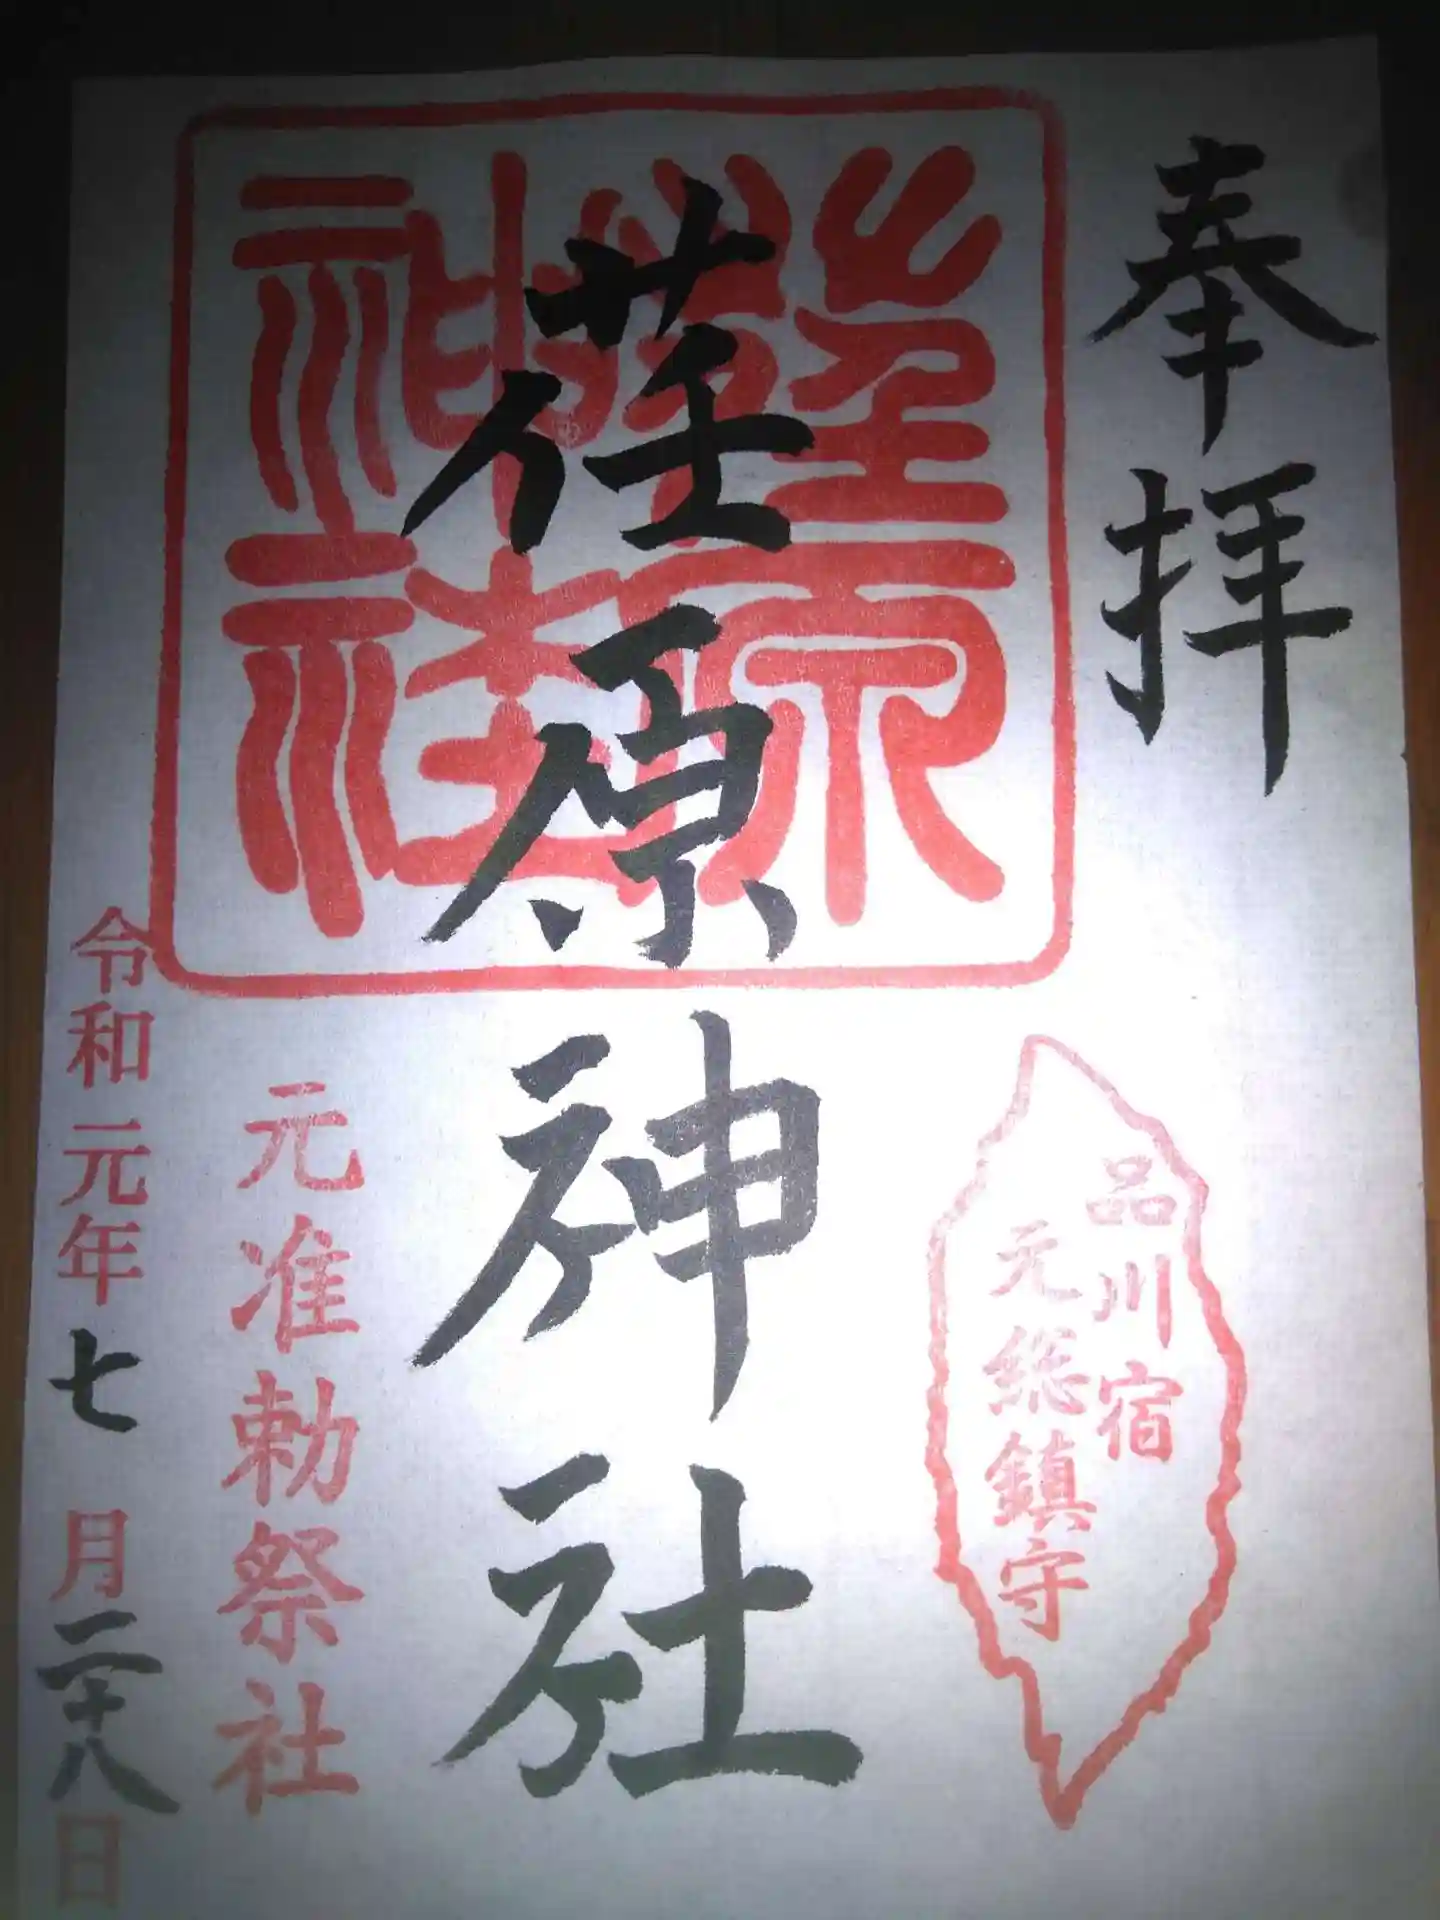 奉拝
品川宿
元総鎮守
荏原神社
荏原神社
元准勅祭社
令和元年七月二十八日